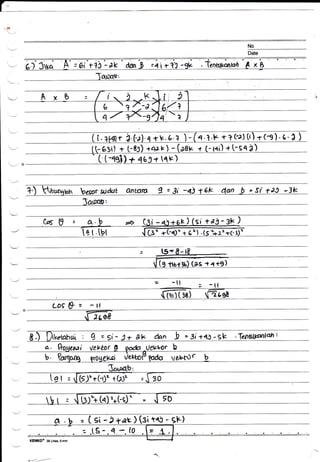 No
Date
6.) Jika A = 6i + 7j - 2k dan B = 4i + 7j - 9k . Tentukanlah A x B
Jawab:
A x B = / i j k \ i j
6 7 -2 6 7
4 7 -9 4 7
( (-63i) + (-8j) + 42k ) - ( 28k + (-14i) + (-54j) )
( (-49i) + 46j + 14k )
7.) Hitunglah besar sudut antara a = 3i - 4j + 6k dan b = 5i + 2j - 3k
Jawab:
Cos θ = a . b => (3i - 4j + 6k) (5i + 2j - 3k)
|a| . |b| √(3² + (-4)² + 6²) . (5² + 2² + (-3)²
= 15 - 8 - 18
√(9 + 16 + 36) (25 + 4 + 9)
= -11 = -11
√(61)(38) √
Cos θ = -11
√
8.) Diketahui : a = 5i - j + 2k dan b = 3i + 4j - 5k . Tentukanlah :
a. Proyeksi vektor a pada vektor b
b. Panjang proyeksi vektor pada vektor b
Jawab:
|a| = √(5)² + (-1)² + (2)² = √30
|b| = √(3)² + (4)² + (-5)² = √50
a . b = (5i - j + 2k) (3i + 4j - 5k)
= 15 - 4 - 10 = 1